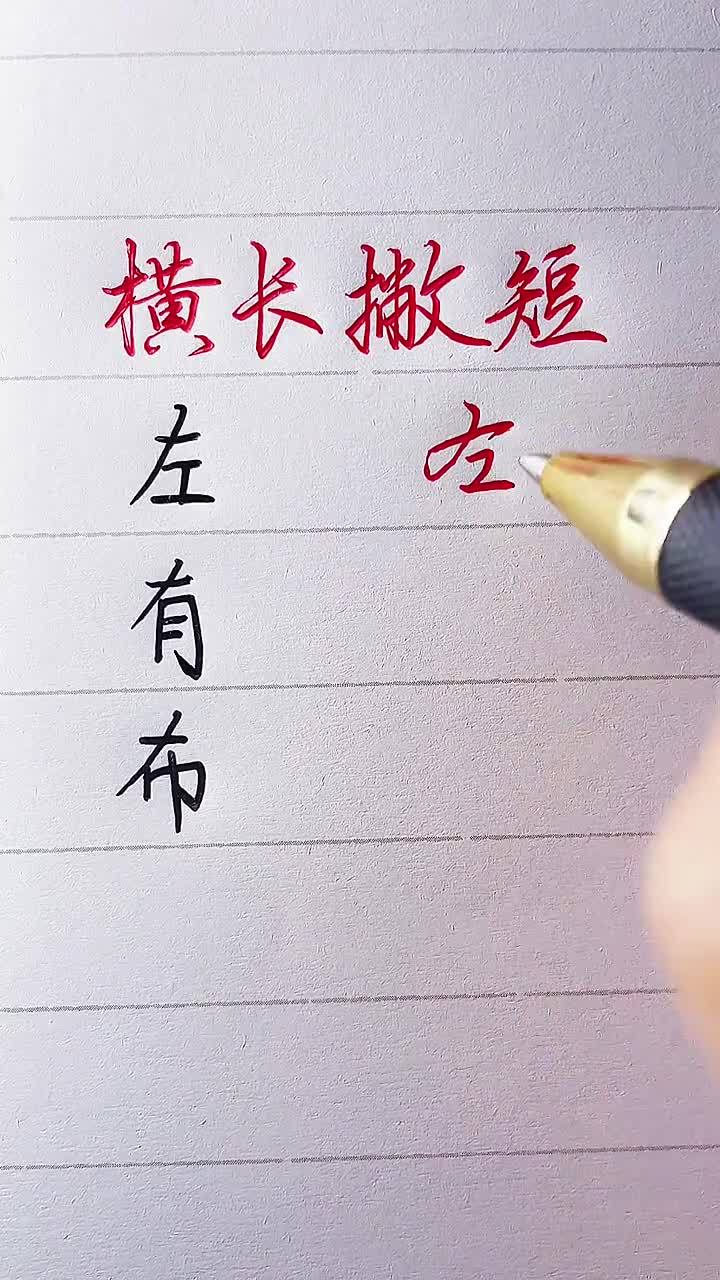 横长撇短
左 左
有
布